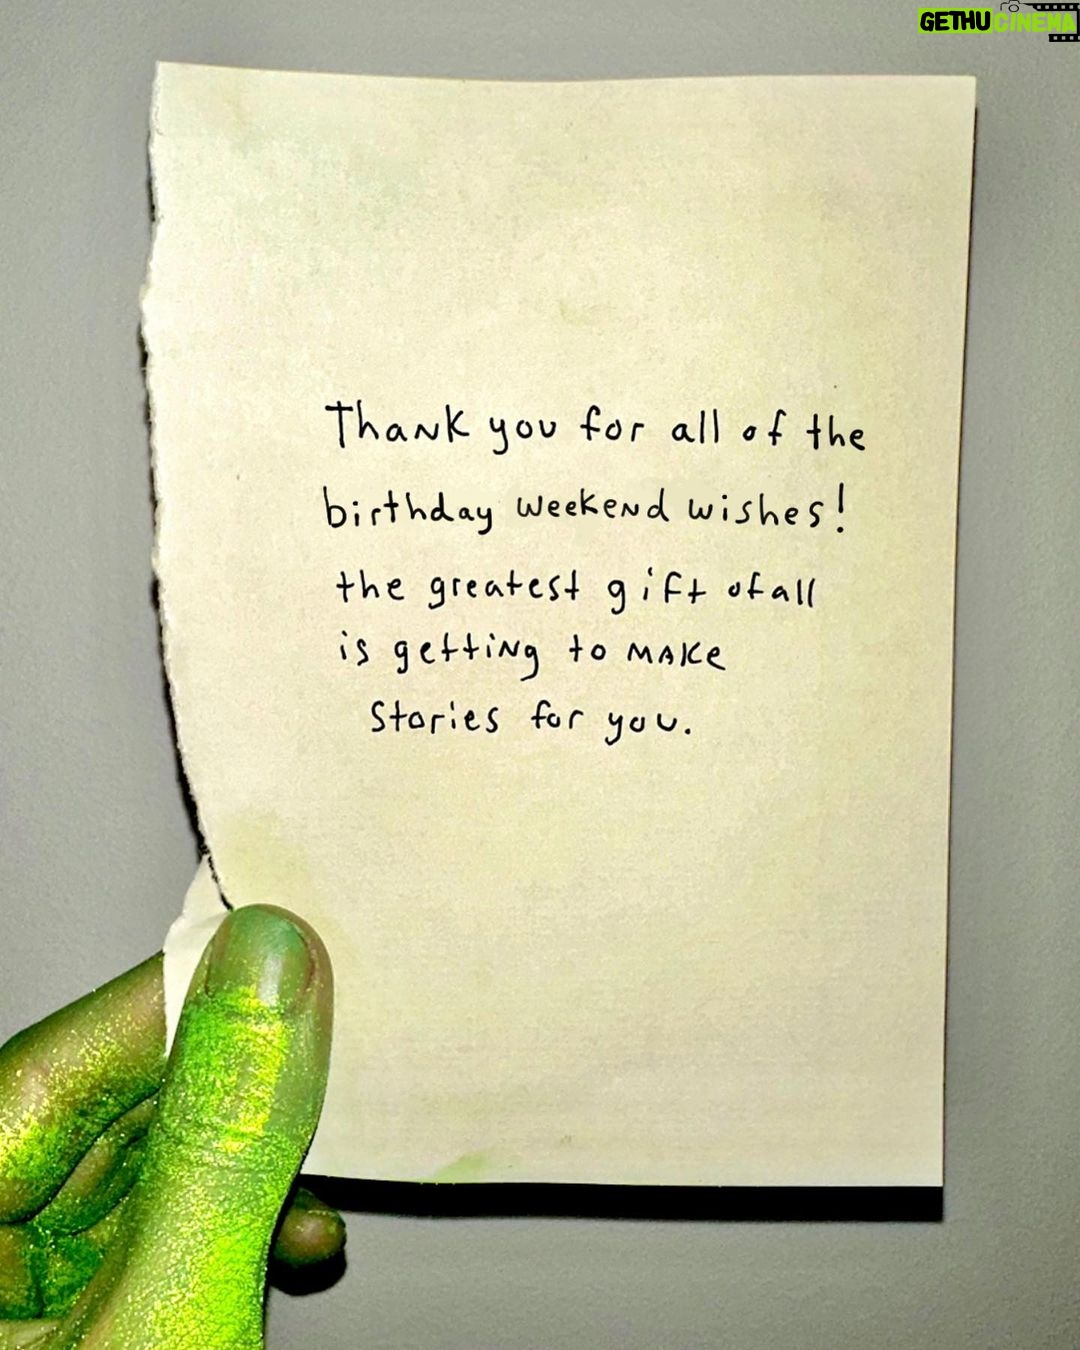 GETHUCINEMA
Thank you for all of the
birthday weekend wishes!
the greatest gift of all
is getting to make
stories for you.